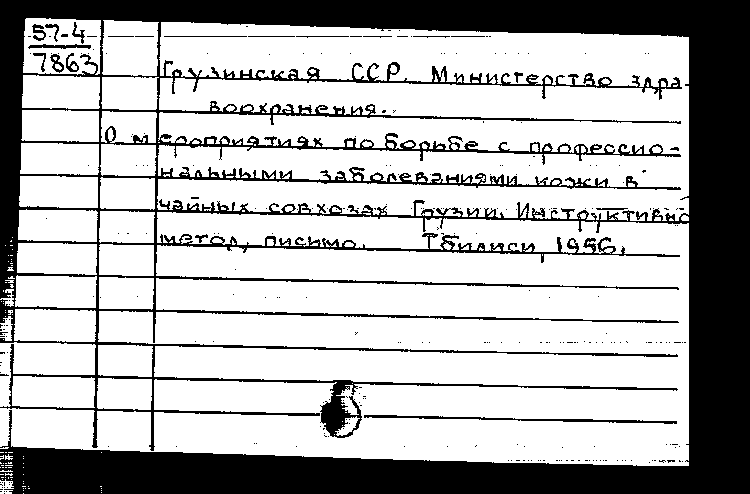 57-4
7863
Грузинская ССР. Министерство здра-
воохранения.
О мероприятиях по борьбе с профессио-
нальными заболеваниями кожи в
чайных совхозах Грузии. Инструктивно
метод, письмо. Тбилиси, 1956.